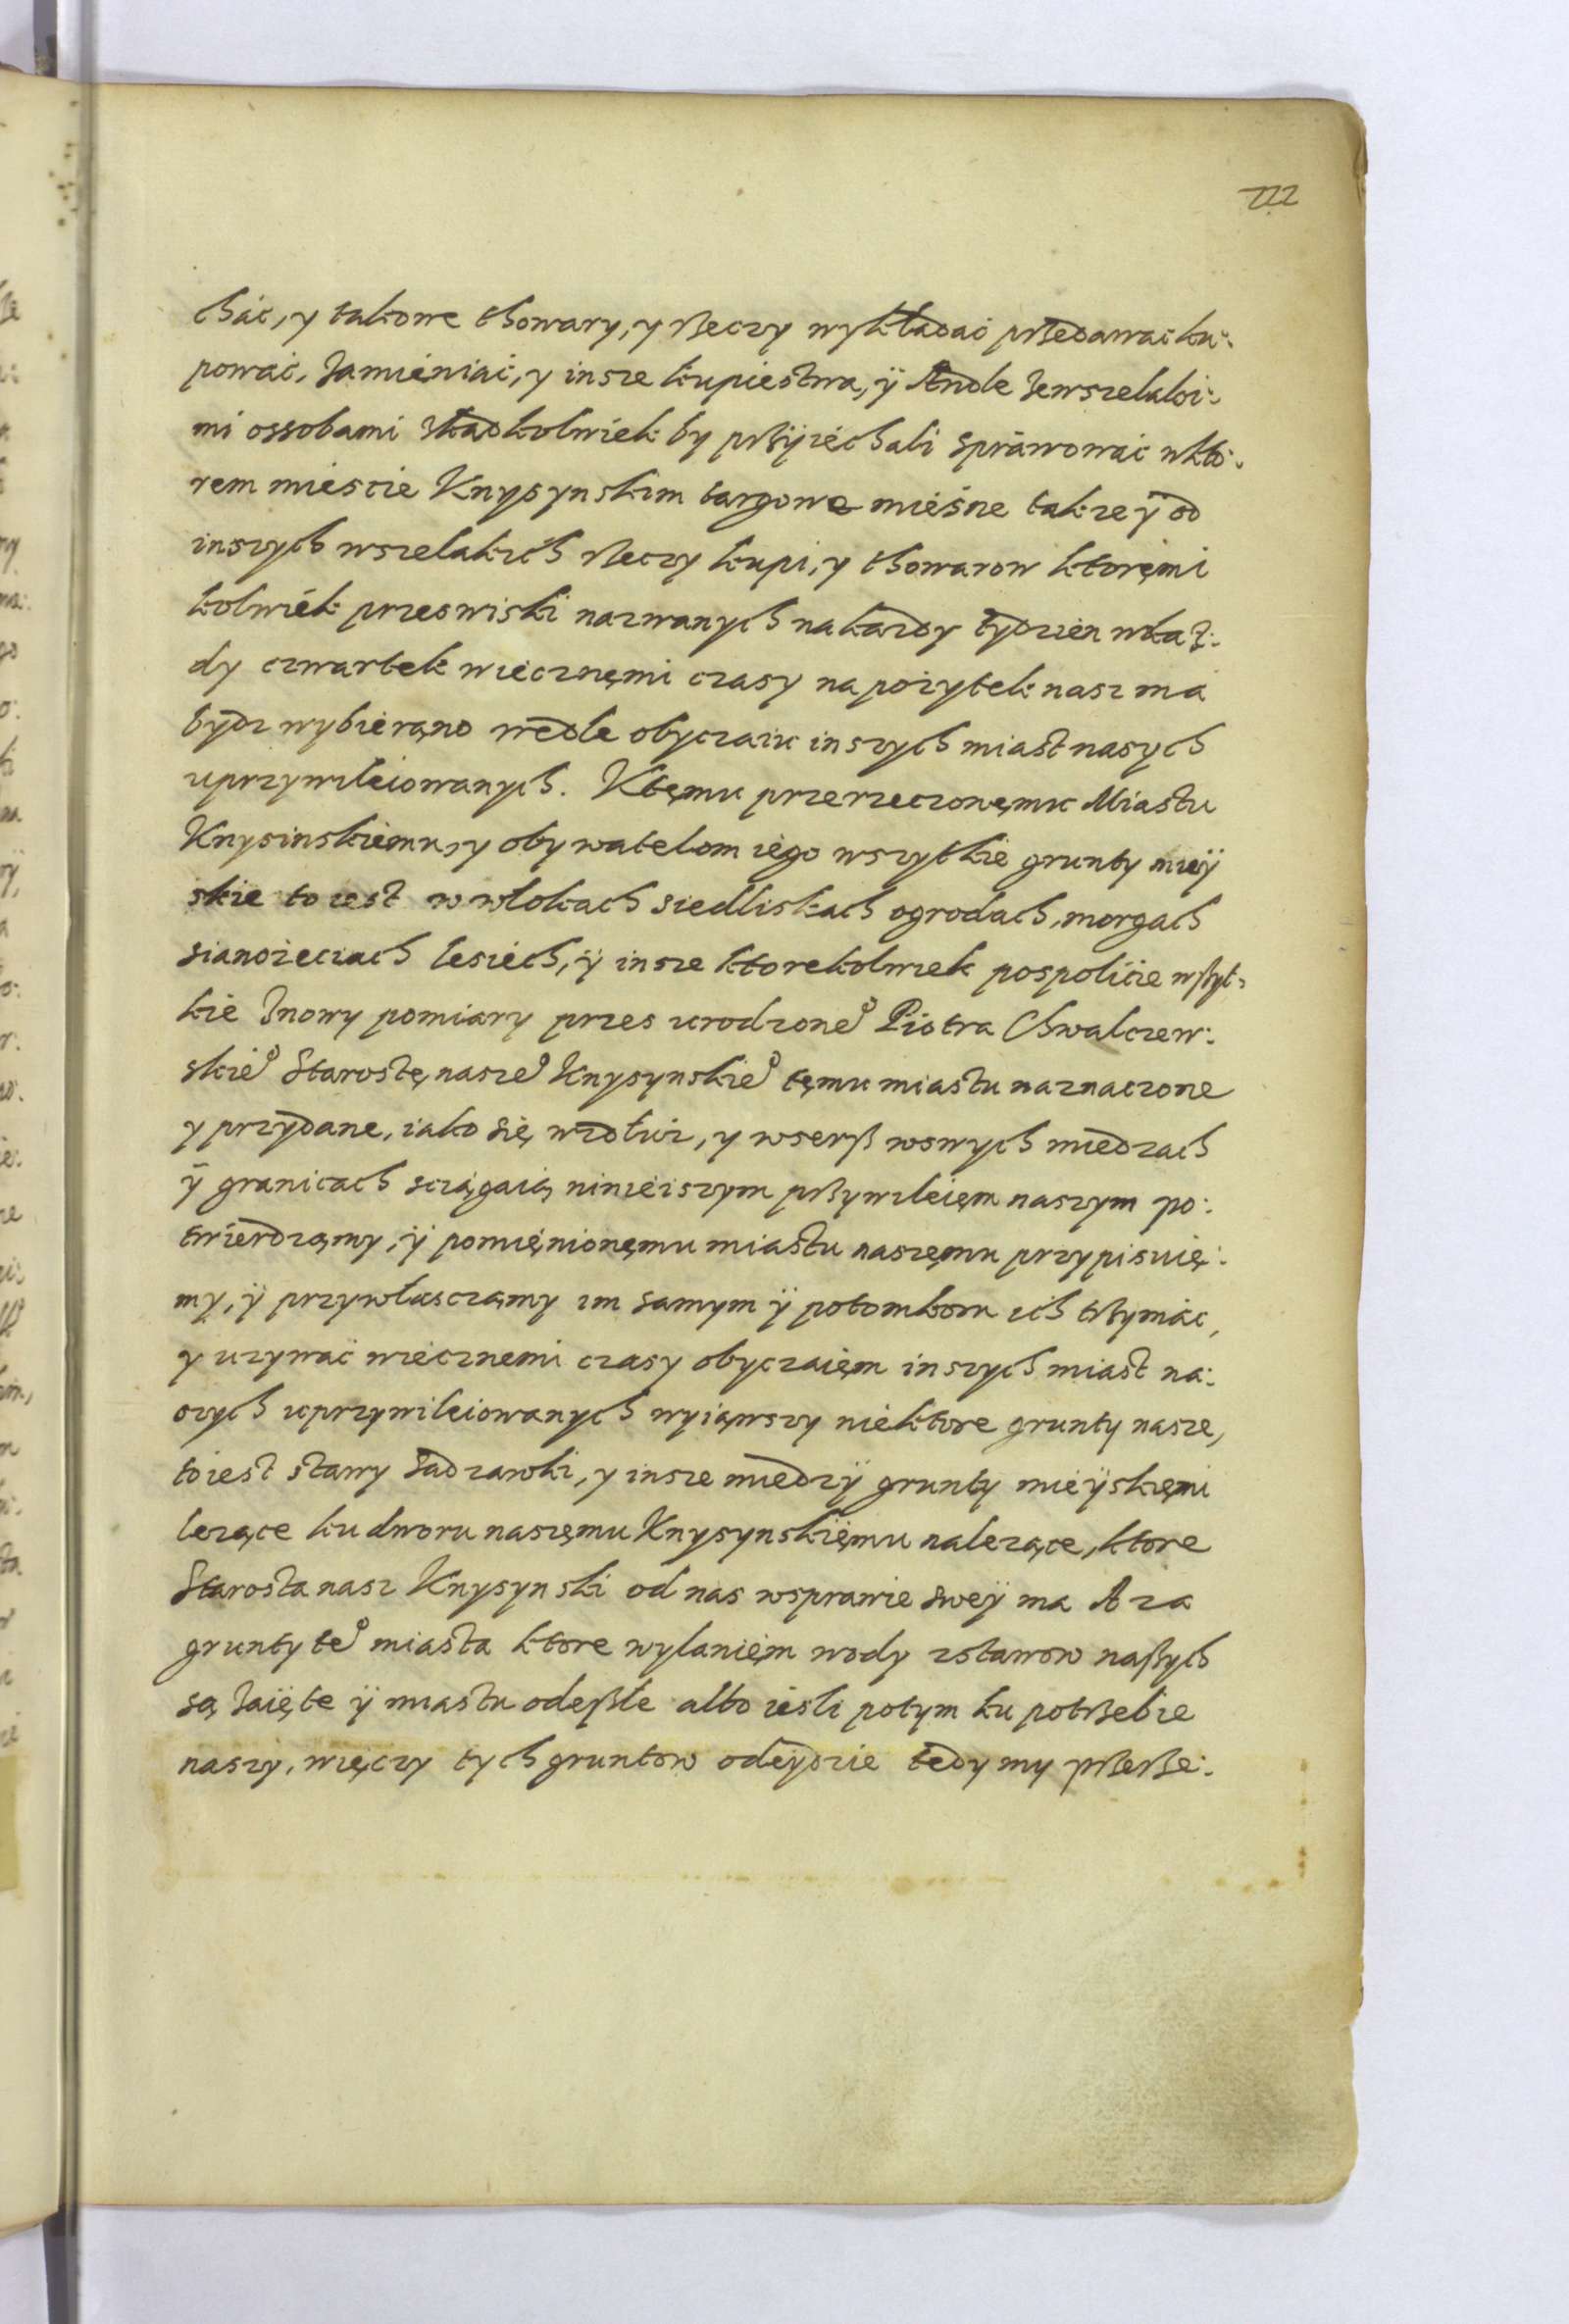 222
chać, y takowe thowary, y Rzeczy wykładać przedawać ku:
pować, Zamieniać, y insze kupiestwa, ÿ Andle Zewszelakoi:
mi ossobami Zkadkolwiek by przÿiechali sprawować wkto:
rem miescie Knyszynskim targowe mieśne takze ÿ od
inszych wszelakich Rzeczy kupi, y thowarow ktoręmi
kolwiek przeswiski nazwanych na kazdy tydzien wkaż:
dy czwartek wiecznęmi czasy na pożytek nasz ma
bydz wybierąno wedle obyczaiu inszych miast naszych
uprzywileiowanych. Ktęmu przerzeczonęmu Miastu
Knysinskiemu, y obywatelom iego wszytkie grunty mieÿ
skie to iest w włokach siedliskach ogrodach, morgach
sianożeciach lesiech, ÿ insze ktorekolwiek pospolicie wßyt:
kie Znowy pomiary przes urodzone° Piotra Chwalczew:
skie° Starostę nasze° Knysynskie° tęmu miastu naznaczone
y przydane, iako się wzdłuż, y wserß wswych miedzach
ÿ granicach sciągaią ninieiszym przywileięm naszym po:
twierdząmy, ÿ pomięnionęmu miastu naszęmu przypisuię:
my, ÿ przywłaszczamy im samym ÿ potomkom ich trzymać,
y uzywać wiecznemi czasy obyczaięm inszych miast na:
szych uprzywileiowanych wyiąwszy niektore grunty nasze,
to iest stawy Sadzawki, y insze miedzÿ grunty mieÿskięmi
leżące ku dworu naszęmu Knysynskięmu nalezące, ktore
Starosta nasz Knysynski od nas wsprawie sweÿ ma A za
grunty te° miasta ktore wylanięm wody zstawow naßych
są Zaięte ÿ miastu odeßłe albo iesli potym ku potrzebie
naszy, więczy tych gruntow odeÿdzie tedy my przerze: